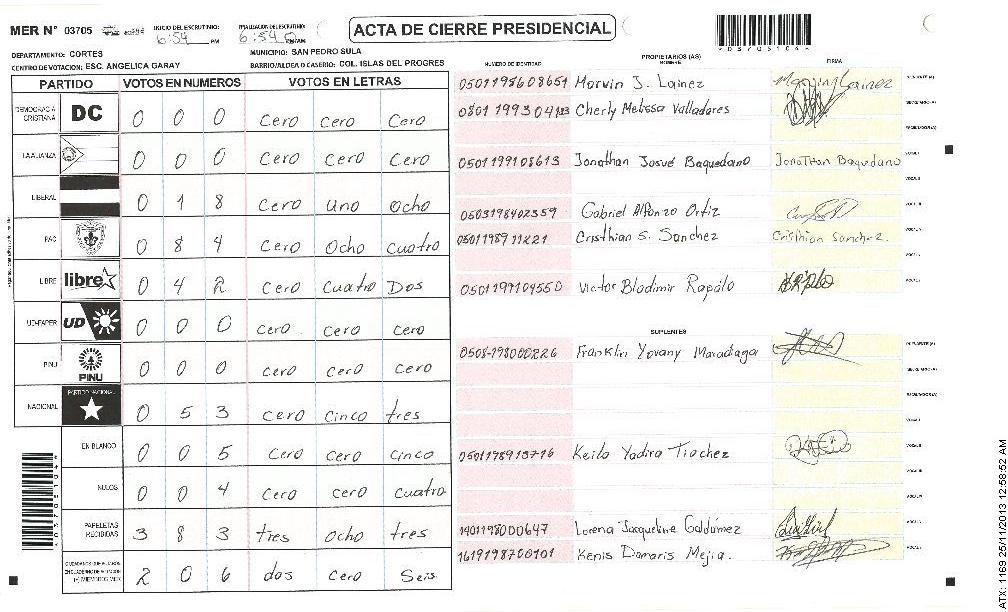 MER N° 03705 INICIO DEL ESCRUTINIO: 6:54 PM 6:54 PM/AM ACTA DE CIERRE PRESIDENCIAL
DEPARTAMENTO: CORTES MUNICIPIO: SAN PEDRO SULA
CENTRO DE VOTACION: ESC. ANGELICA GARAY BARRIO/ALDEA O CASERIO: COL. ISLAS DEL PROGRES
NUMERO DE IDENTIDAD PROPIETARIOS (AS) NOMBRE FIRMA
PARTIDO VOTOS EN NUMEROS VOTOS EN LETRAS
DEMOCRACIA CRISTIANA DC 0 0 0 Cero Cero Cero
LA ALIANZA 0 0 0 Cero Cero Cero
LIBERAL 0 1 8 Cero Uno Ocho
PAC 0 8 4 Cero Ocho Cuatro
LIBRE libre 0 4 2 Cero Cuatro Dos
UD-FAPER UD 0 0 0 Cero Cero Cero
PINU PINU 0 0 0 Cero Cero Cero
NACIONAL PARTIDO NACIONAL 0 5 3 Cero Cinco tres
EN BLANCO 0 0 5 Cero Cero Cinco
NULOS 0 0 4 Cero cero cuatro
PAPELETAS RECIBIDAS 3 8 3 tres ocho tres
2 0 6 dos Cero Seis
0501195608651 Marvin J. Lainez
Cherly Melissa Valladares
0501199108613 Jonathan Josué Baquedano Jonathan Baquedano
0503198402359 Gabriel Alfonzo Ortiz
0501198911221 Cristhian S. Sanchez Cristhian Sanchez.
0501199104550 Victor Bladimir Rapalo
SUPLENTES
0508-198000226 Franklin Yovany Maradiaga
0501198913716 Keila Yadira Trochez
1401198000647 Lorena Jacqueline Galdámez
1619198700101 Kenis Damaris Mejia.
ATX: 1169 25/11/2013 12:58:52 AM